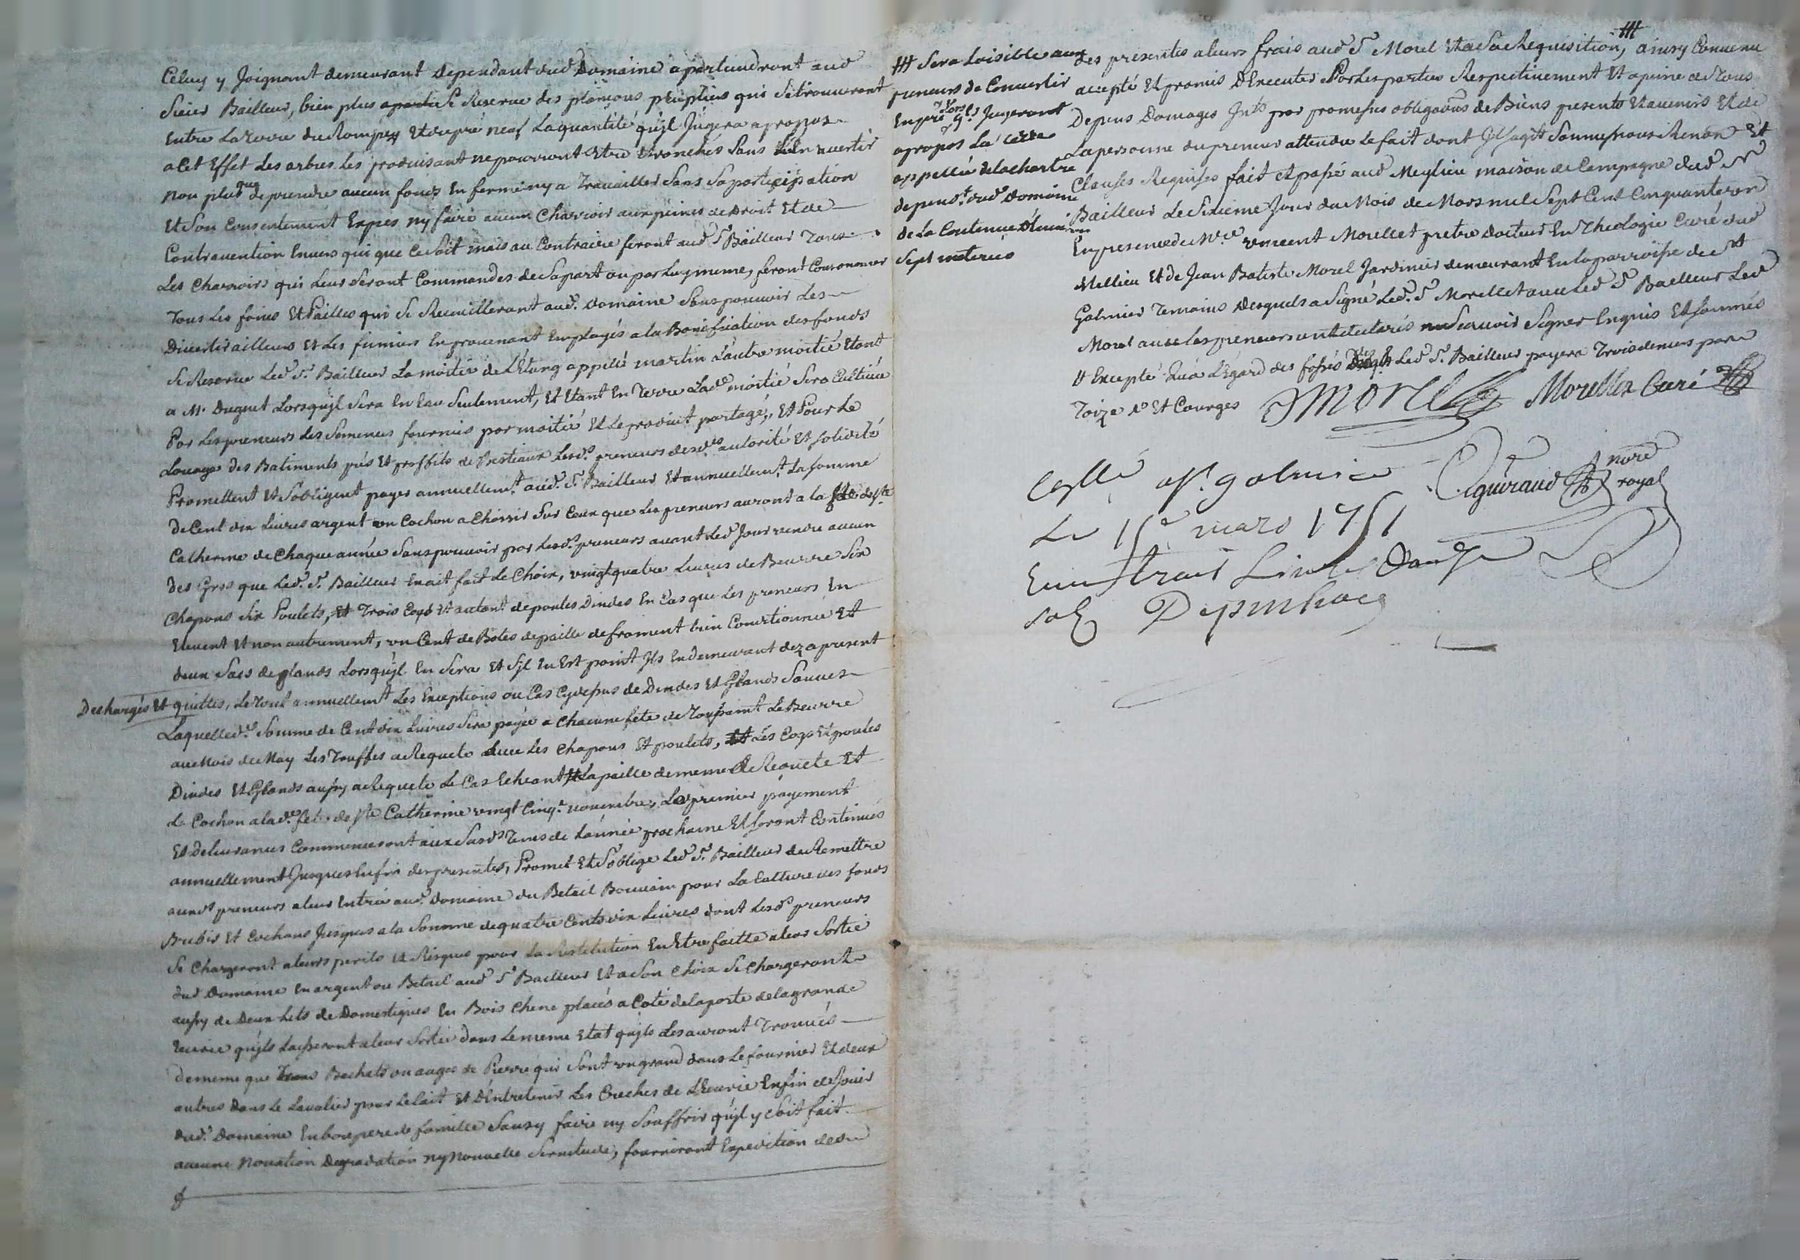 Celuy y Joignant demeurant dependant dud Domaine apartiendront aud
Sieur Bailleur, bien plus Se Reserve des plançons peupliers qui Se trouveront
Entre La Terre du et du pré neuf La quantité qu'il Jugera apropos
a Cet Effet Les arbres les produisant ne pourront Etre Etronchés Sans L'En avertir
Non plus que de prendre aucun fonds En ferme ny a Travailler Sans Sa participation
Et Son Consentement Expres ny faire aucun Charroir aux peines de Droit Et de
Contravention Envers qui que Ce Soit mais au Contraire feront aud. Sr. Bailleur Tous
Les Charroirs qui Leur Seront Commandés de Sa part ou par Luy meme, feront Consommer
Tous Les foins Et Pailles qui Se Recuilleront aud. Domaine Sans pouvoir Les
Divertir ailleurs Et Les fumiers En provenant Employés a la Bonification des fonds
Se Reserve Led. Sr. Bailleur La moitié de L'Etang appellé martin L'autre moitié Etant
a Mr. Duguet Lorsqu'jl Sera En Eau Seulement, Et Etant En Terre Lad. moitié Sera Cultivée
Par Les preneurs Les Semences fournies par moitié Et Le produit partagé, Et Pour Le
Louage des Batiments prés Et proffits de Bestiaux Lesd. preneurs desd. autorité Et Solidité
Promettent Et S'obligent payer annuellemt. aud. Sr. Bailleur Et annuellemt. La Somme
de Cent dix Livres argent un Cochon a Choisir Sur Ceux que Les preneurs auront a la fete de Ste
Catherine de Chaque année Sans pouvoir par Lesd. preneurs avant Led. Jour vendre aucun
des Gros que Led. Sr. Bailleur En ait fait Le Choix, vingt quatre Livres de Beurre Six
Chapons Six Poulets, Et Trois Coqs Et autant de poules Dindes En Cas que Les preneurs En
Elevent Et non autrement, un Cent de Botes de paille de froment bien Conditionnée Et
deux Sacs de glands Lorsqu'jl En Sera Et S'jl En Est point Jls En demeurant dez a present
Dechargés Et quittes, Le Tout annuellemt Les Exceptions ou Cas Cydessus de Dindes Et Glands Sauves
Laquelle d. Somme de Cent dix Livres Sera payée a Chacune fete de Toussaint Le Beurre
au Mois de May Les Trouffes a Requete Les Chapons Et poulets, Les Coqs Et poules
Dindes Et Glands aussy a Requete Le Cas Echeant La paille de meme a Requete Et
Le Cochon a lad. fete de Ste Catherine vingt Cinq novembre, Le premier payement
Et delivrances Commenceront aux Susd. Tems de L'année prochaine Et Seront Continués
annuellement Jusques La fin des presentes, Promet Et S'oblige Led. Sr. Bailleur de Remettre
auxd. preneurs a leur Entrée aud. Domaine du Betail Bouvain pour La Culture des fonds
Brebis Et Cochons Jusques a la Somme de quatre Cents dix Livres dont Lesd. preneurs
Se Chargeront a leurs perils Et Risques pour La Restitution En Etre faitte a leur Sortie
dud Domaine En argent ou Betail aud Sr Bailleur Et a Son Choix Se Chargeront
aussy de Deux Lits de Domestiques En Bois Chene placés a Coté de la porte de la grande
Ecurie qu'jls Laisseront a leur Sortie dans Le meme Etat qu'jls Les auront Trouvés
de meme que Trois Bachats ou auges de Pierre qui Sont un grand dans Le fournier Et deux
autres dans Le pour Le lait Et D'Entretenir Les Creches de L'Ecurie Enfin de Jouir
dud. Domaine En bon pere de famille Sans y faire ny Souffrir qu'jl y Soit fait
aucune Novation Degradation ny Nouvelle Servitude, fourniront Expedition des
Sera Loisible aux
preneurs de Convertir
En pré Lors qu'jls Jugeront
apropos La Terre
appellée de la
dependt. dud. Domaine
de La Contenue
Sept meterées
des presentes a leurs frais aud Sr Morel Et a Sa Requisition, ainsy Convenu
accepté Et promis D'Executer Par Les parties Respectivement Et a peine de Tous
Depens Domages Jnts par promesses obligaons de Biens presents Et avenirs Et de
La personne du preneur attendu Le fait dont Jl S'agit Soumissions Renon Et
Clauses Requises fait Et passé aud Meylieu maison de Campagne dud. Sr
Bailleur Le Sixieme Jour du Mois de Mars mil Sept Cent Cinquante un
En presence de Mre vincent Morellet pretre Docteur En Theologie Curé dud
Meillieu Et de Jean Batiste Morel Jardinier demeurant En la parroisse de St
Galmier Temoins Desquels a Signé Led. Sr Morellet avec Led Sr Bailleur Led
Morel avec Les preneurs ont declarés ne Scavoir Signer Enquis Et Sommés
Et Excepté Qu'a L'égard des fossés Led Sr. Bailleur payera Trois deniers par
Toize Et Courges
Morel Morellet Curé
Cqueraud nore royal
Collé a St. galmier
Le 15e mars 1751